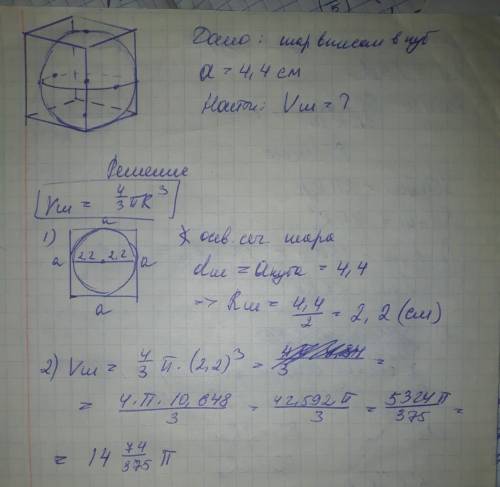 Дано: шар вписан в куб
a = 4,4 см
Найти: Vш = ?
Решение
Vш = 4/3 πR³
1)
a
a 2,2 2,2 a
a
осев. сеч. шара
dш = aкуба = 4,4
=> Rш = 4,4/2 = 2,2 (см)
2) Vш = 4/3 π · (2,2)³ = =
= 4·π·10,648/3 = 42,592π/3 = 5324π/375 =
= 14 74/375 π